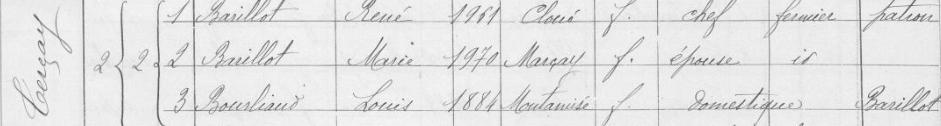 1 Barillot René 1961 Cloué f. chef fermier patron
2 { 2 { 2 Barillot Marie 1970 Marçay f. épouse id
3 Bourliaud Louis 1884 Montamisé f. domestique Barillot